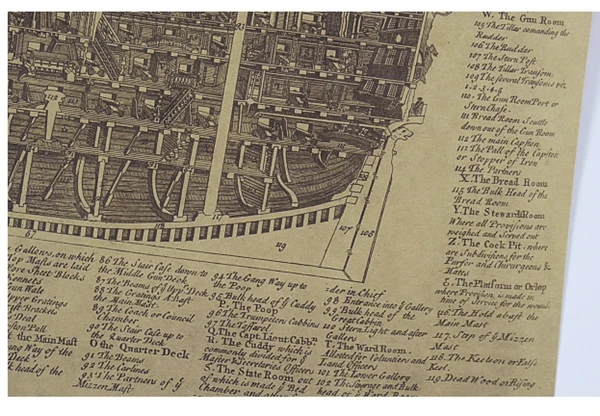 W. The Gun Room
105 The Tillar comanding the
Rudder
106 The Rudder
107 The Stern Post
108 The Tillar Transom
109 The several Transoms viz.
1.2.3.4.5
110. The Gun Room Port or
Stern Chase.
111 Bread Room Scuttle
down out of the Gun Room
112 The main Capston
113 The Pall of the Capston
or Stopper of Iron
114 The Partners
X. The Bread Room
115 The Bulk Head of the
Bread Room
Y. The Steward Room
Where all Provisions are
weighed and Served out
Z. The Cock Pit. where
are Subdivisions for the
Purser and Chirurgeons &
Mates
&. The Platform or Orlop
where Provision is made in
time of Service for the wounded
116 The Hold abaft the
Main Mast
117. Step of ye Mizzen
Mast
118. The Kelson or False
Keel.
119. Dead Wood or Rising
93
112
113
67
118
117
119
107
108
Gallows, on which
Top Masts are laid
Sheet Blocks
Kennets
Gratings
Brackets
Pall
the Main Mast
Way of the
Deck
86 The Stair Case down to
the Middle Gun Deck
87 The Beams of ye Upr Deck
88 The Gratings Abaft
the Main Mast.
89 The Coach or Council
Chamber
90 The Stair Case up to
ye Quarter Deck
O the Quarter Deck
91 The Beams
92 The Carlines
93 The Partners of ye
Mizzen Mast
94 The Gang Way up to
the Poop
95 Bulk head of ye Cuddy
P. The Poop
96 The Trumpeters Cabbins
97 The Taffarel
Q. The Capt. Lieut. Cabbn
R. The Cuddy which is
commonly divided for ye
Mastr & Secretaries Officers
S. The State Room out
of which is made ye Bed
Chamber and other
der in Chief
98 Entrance into ye Gallery
99 Bulk head of the
Great Cabbin
100 Stern Light and after
Gallery
T. The Ward Room.
Allotted for Voluntiers and
Land Officers
101 The Lower Gallery
102 The Steerage and Bulk
head of ye Ward Room